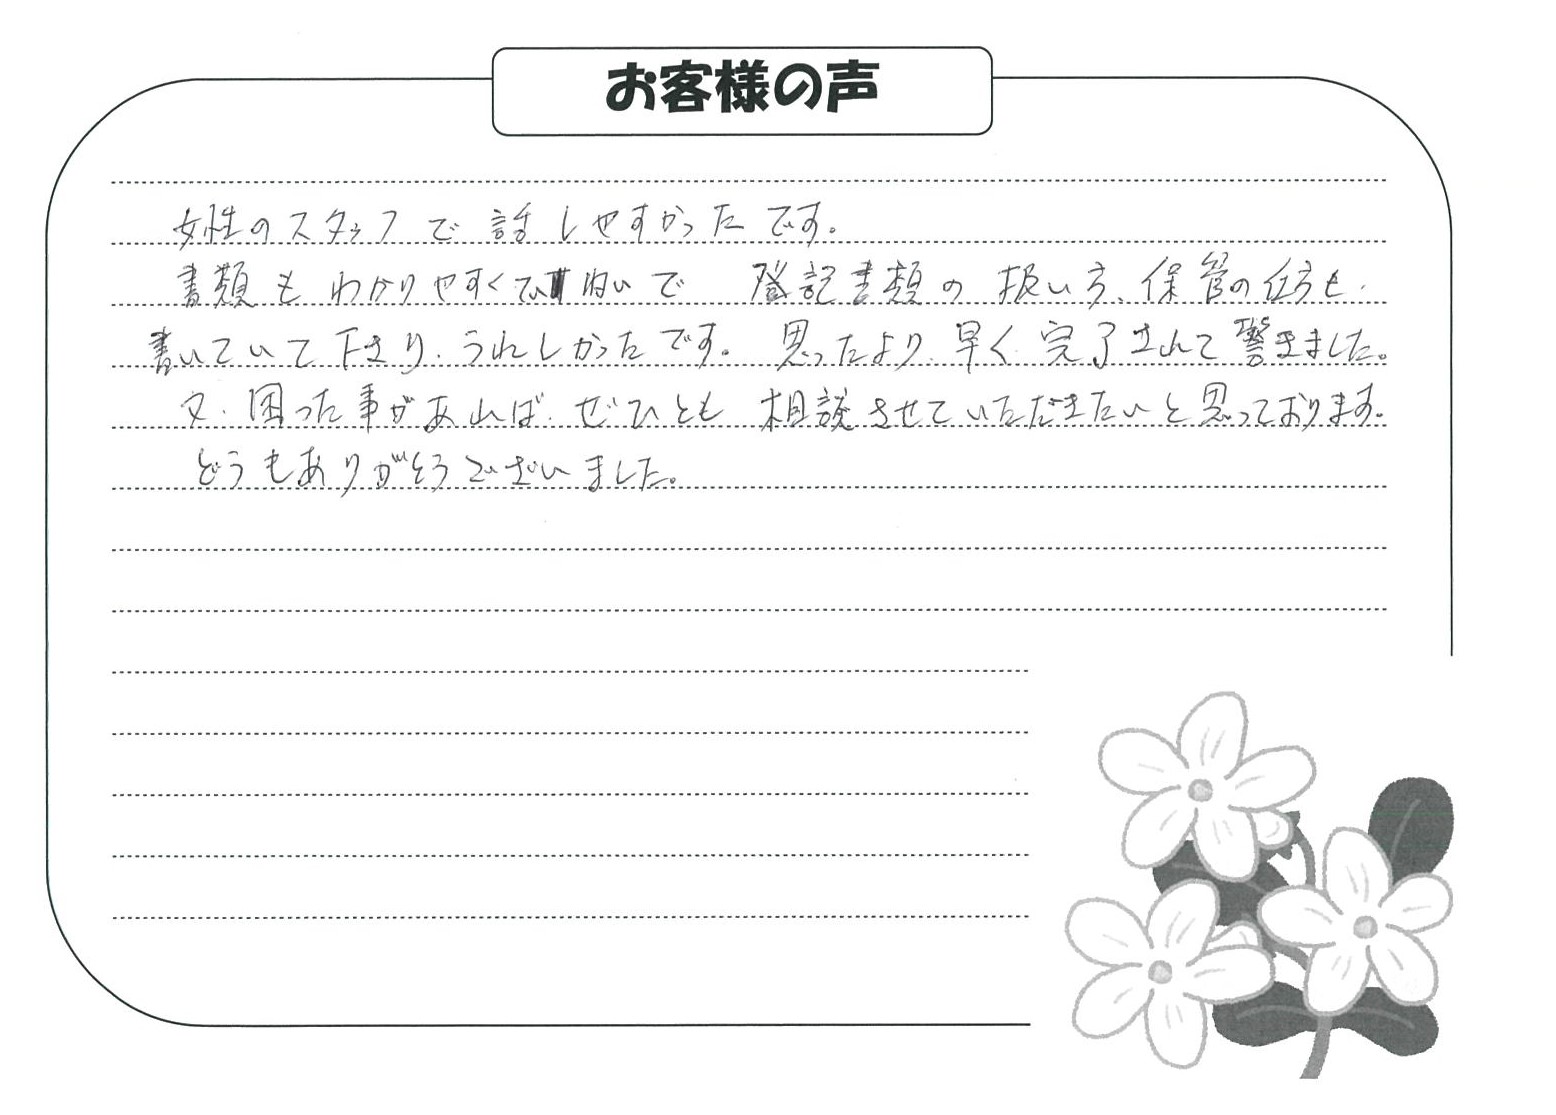 お客様の声
女性のスタッフで話しやすかったです。
書類もわかりやすくてい的いで 登記書類の扱い方、保管の仕方も、
書いていて下さり、うれしかったです。思ったより、早く完了されて驚きました。
又、困った事があれば、ぜひとも相談させていただきたいと思っております。
どうもありがとうございました。